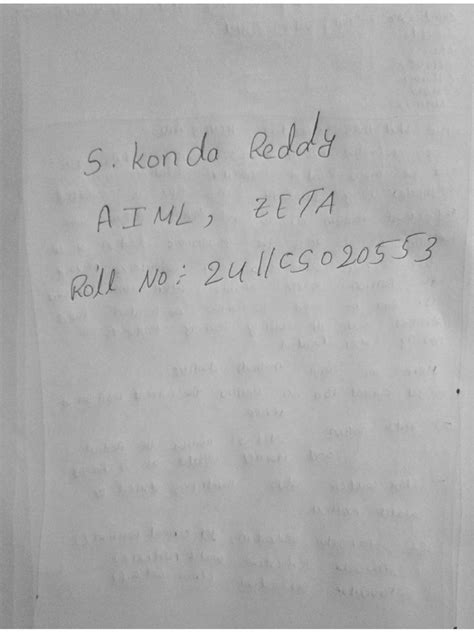 S. Konda Reddy
AIML, ZETA
Roll No: 2411CS020553